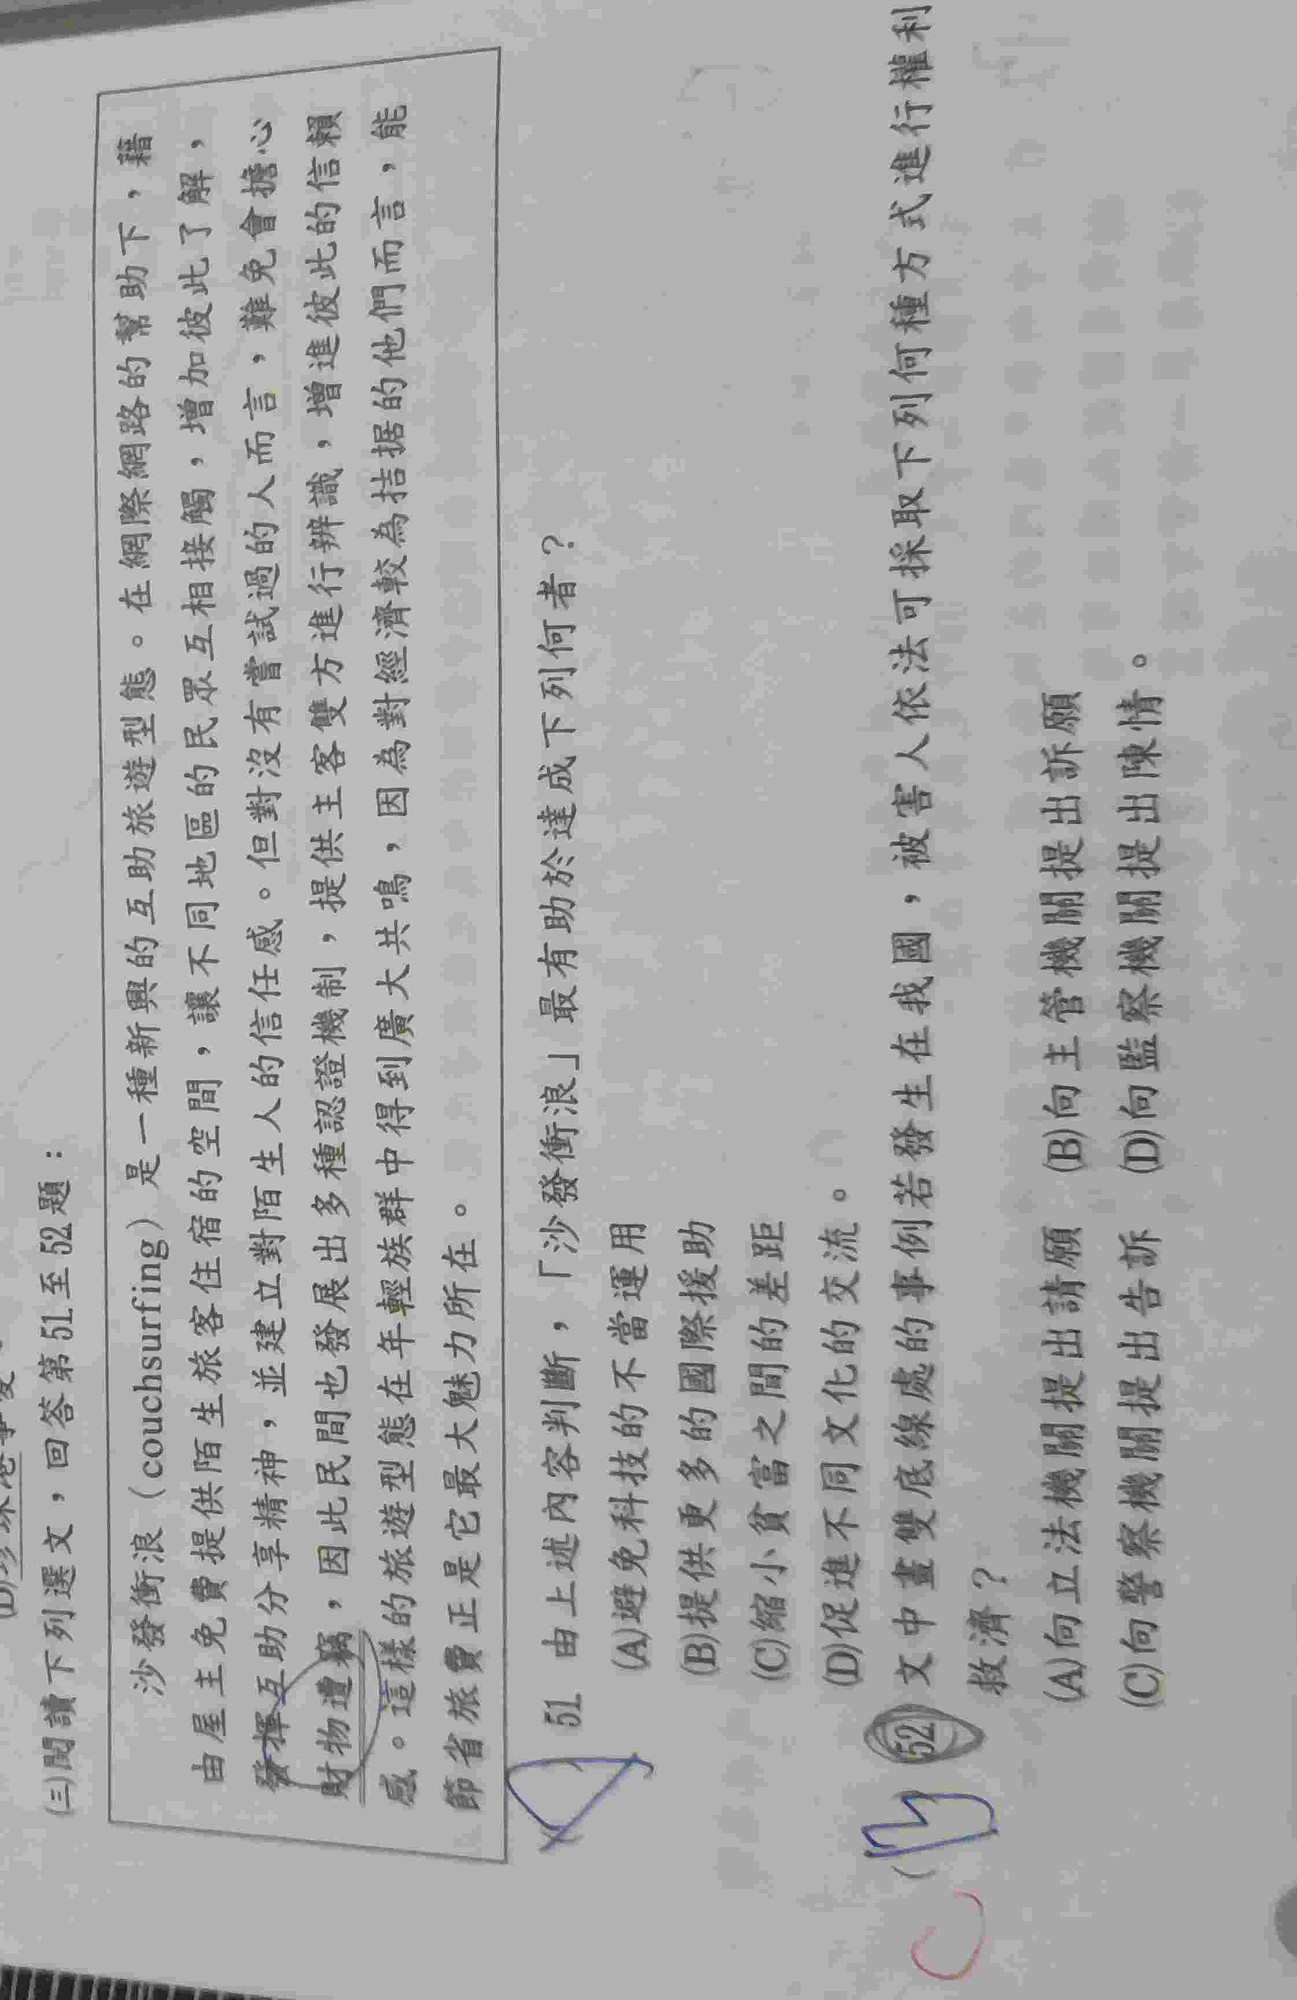 (三)閱讀下列選文，回答第51至52題：
沙發衝浪（couchsurfing）是一種新興的互助旅遊型態。在網際網路的幫助下，藉
由屋主免費提供陌生旅客住宿的空間，讓不同地區的民眾互相接觸，增加彼此了解，
發揮互助分享精神，並建立對陌生人的信任感。但對沒有嘗試過的人而言，難免會擔心
財物遭竊，因此民間也發展出多種認證機制，提供主客雙方進行辨識，增進彼此的信賴
感。這樣的旅遊型態在年輕族群中得到廣大共鳴，因為對經濟較為拮据的他們而言，能
節省旅費正是它最大魅力所在。
51 由上述內容判斷，「沙發衝浪」最有助於達成下列何者？
(A)避免科技的不當運用
(B)提供更多的國際援助
(C)縮小貧富之間的差距
(D)促進不同文化的交流。
C (B) 52 文中畫雙底線處的事例若發生在我國，被害人依法可採取下列何種方式進行權利
救濟？
(A)向立法機關提出請願 (B)向主管機關提出訴願
(C)向警察機關提出告訴 (D)向監察機關提出陳情。